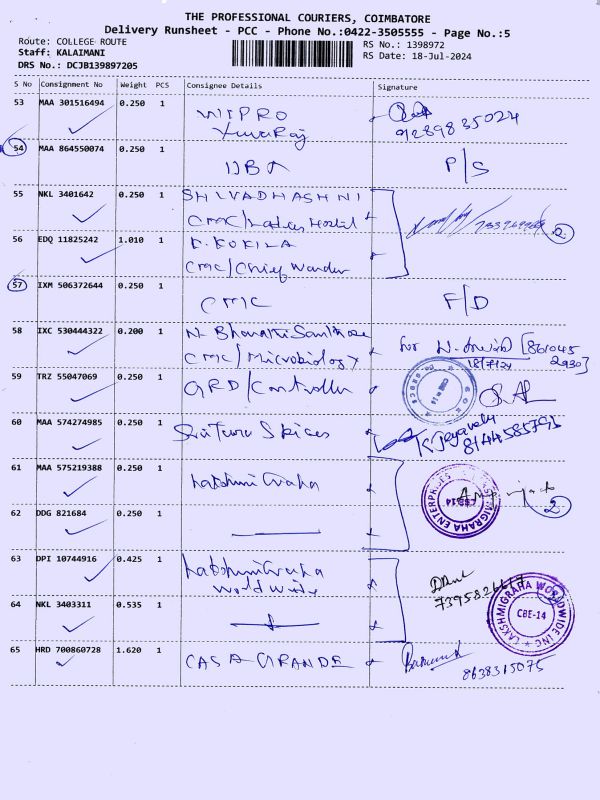 THE PROFESSIONAL COURIERS, COIMBATORE
Delivery Runsheet - PCC - Phone No.:0422-3505555 - Page No.:5
Route: COLLEGE ROUTE
RS No.: 1398972
Staff: KALAIMANI
RS Date: 18-Jul-2024
DRS No.: DCJB139897205
S No Consignment No Weight PCS Consignee Details Signature
53 MAA 301516494 0.250 1 WIPRO
Yuvaraj
9289835024
54 MAA 864550074 0.250 1 P/S
55 NKL 3401642 0.250 1 SHIVADHASHNI
CMC/Ladies Hostel
2
56 EDQ 11825242 1.010 1 K. KOKILA
CMC/Chief Warden
57 IXM 506372644 0.250 1 CMC F/D
58 IXC 530444322 0.200 1 N. Bharathi
CMC/Microbiology
for N.
18/7/24
[861045
2930]
59 TRZ 55047069 0.250 1 GRD/Controller
60 MAA 574274985 0.250 1 Spices
K. Jeyavely
8144585795
61 MAA 575219388 0.250 1 Lakshmi Graha
LAKSHMIGRAHA ENTERPRISES
CBE-14
2
62 DDG 821684 0.250 1
63 DPI 10744916 0.425 1 Lakshmi Graha
worldwide
64 NKL 3403311 0.535 1
LAKSHMIGRAHA WORLDWIDE INC
CBE-14
65 HRD 700860728 1.620 1 CASA GRANDE
8638315075